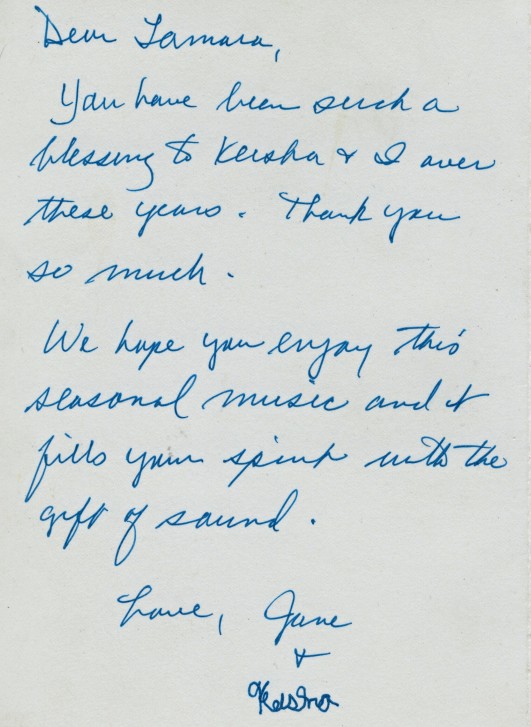 Dear Tamara,
You have been such a
blessing to Keisha & I over
these years. Thank you
so much.
We hope you enjoy this
seasonal music and it
fills your spirit with the
gift of sound.
Love, Jane
&
Keisha